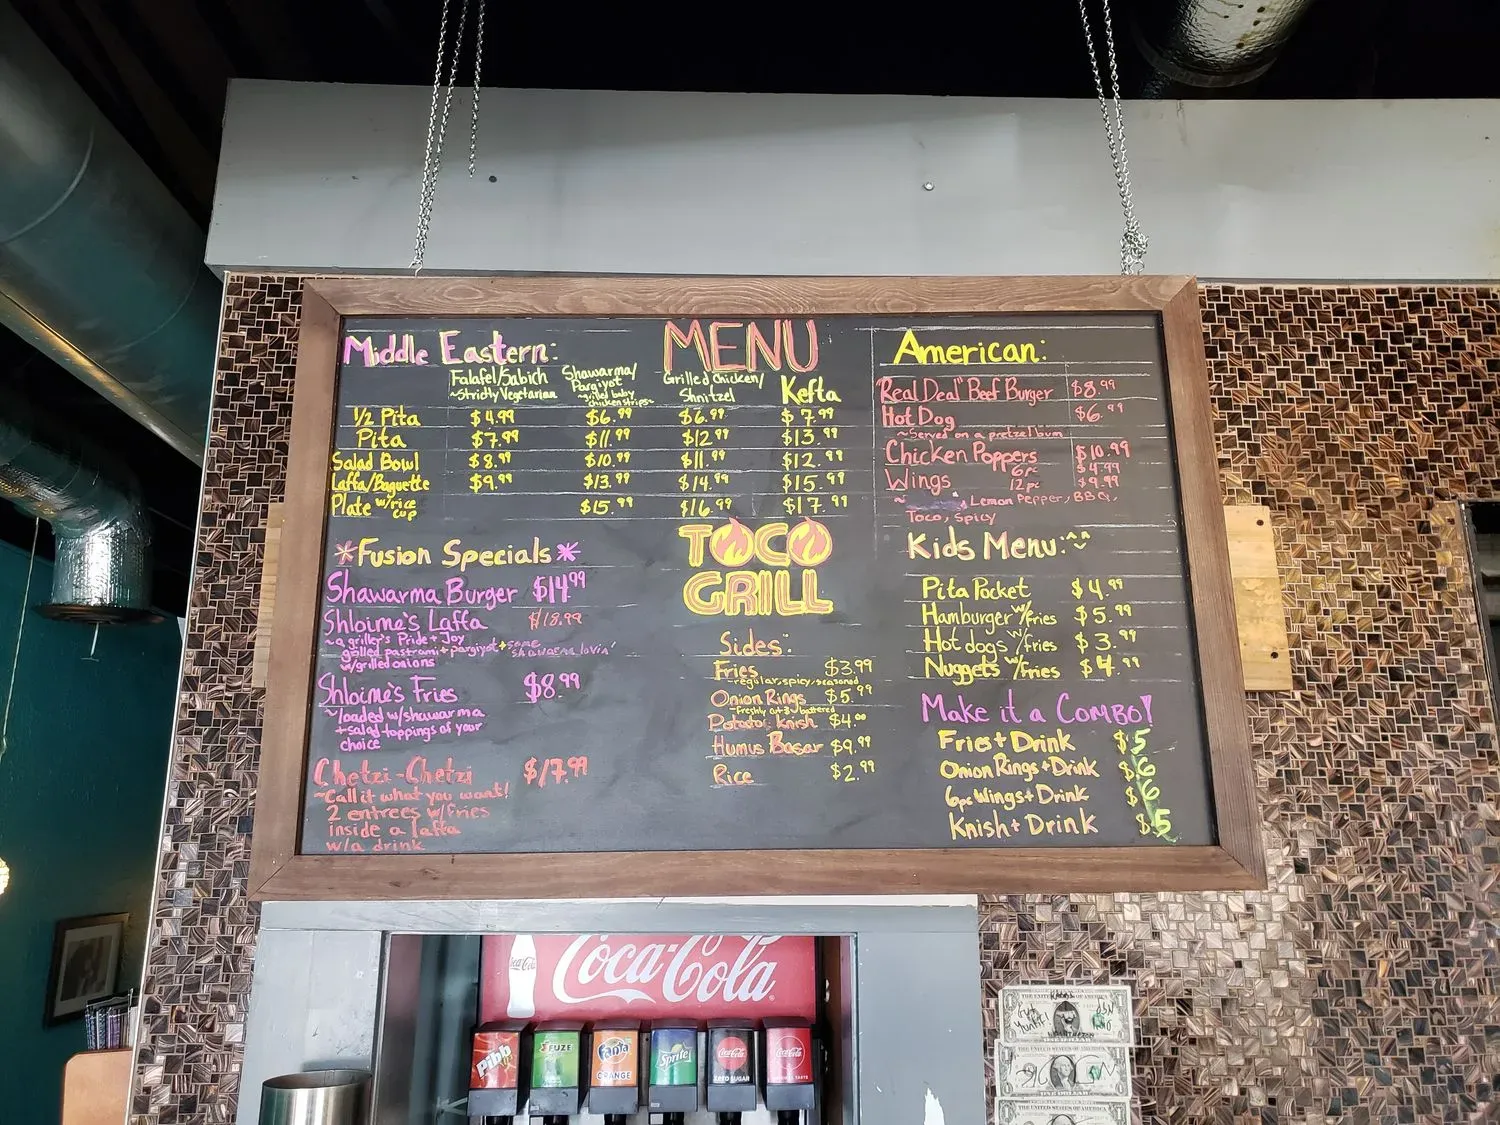 MENU
Middle Eastern:
Falafel/Sabich
~Strictly Vegetarian
Shawarma/
Pargiyot
~grilled baby
chicken strips~
Grilled Chicken/
Shnitzel
Kefta
1/2 Pita $4.99 $6.99 $6.99 $7.99
Pita $7.99 $11.99 $12.99 $13.99
Salad Bowl $8.99 $10.99 $11.99 $12.99
Laffa/Baguette $9.99 $13.99 $14.99 $15.99
Plate w/rice cup $15.99 $16.99 $17.99
*Fusion Specials*
Shawarma Burger $14.99
Shloime's Laffa $18.99
~a griller's Pride + Joy
grilled pastrami + pargiyot + some
shawarma lovin'
w/grilled onions
Shloime's Fries $8.99
~loaded w/shawarma
+salad toppings of your
choice
Chetzi-Chetzi $17.99
~Call it what you want!
2 entrees w/fries
inside a laffa
w/a drink
TOCO
GRILL
Sides:
Fries $3.99
~regular, spicy, seasoned
Onion Rings $5.99
~freshly cut & battered
Potato Knish $4.00
Humus Basar $9.99
Rice $2.99
American:
"Real Deal" Beef Burger $8.99
Hot Dog $6.99
~Served on a pretzel bun
Chicken Poppers $10.99
Wings 6pc $4.99
12pc $9.99
~ Lemon Pepper, BBQ,
Toco, Spicy
Kids Menu:
Pita Pocket $4.99
Hamburger w/fries $5.99
Hot dogs w/fries $3.99
Nuggets w/fries $4.99
Make it a COMBO!
Fries + Drink $5
Onion Rings + Drink $6
6pc Wings + Drink $6
Knish + Drink $5
Coca-Cola
Coca-Cola
Pibb
FUZE
Fanta
ORANGE
Sprite
Coca-Cola
ZERO SUGAR
Coca-Cola
THE UNITED STATES OF AMERICA
THE UNITED STATES OF AMERICA
THE UNITED STATES OF AMERICA